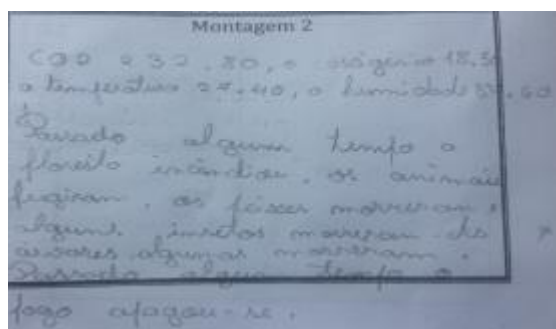 Montagem 2
CO2 232.80, o oxigenio 18.5
a temperatura 27.40, a humidade 37.60
Passado algum tempo a
floresta incêndio, os animais
fugiram, os peixes morreram e
alguns insetos morreram das
arvores algumas morreram.
Passado algum tempo o
fogo apagou-se.